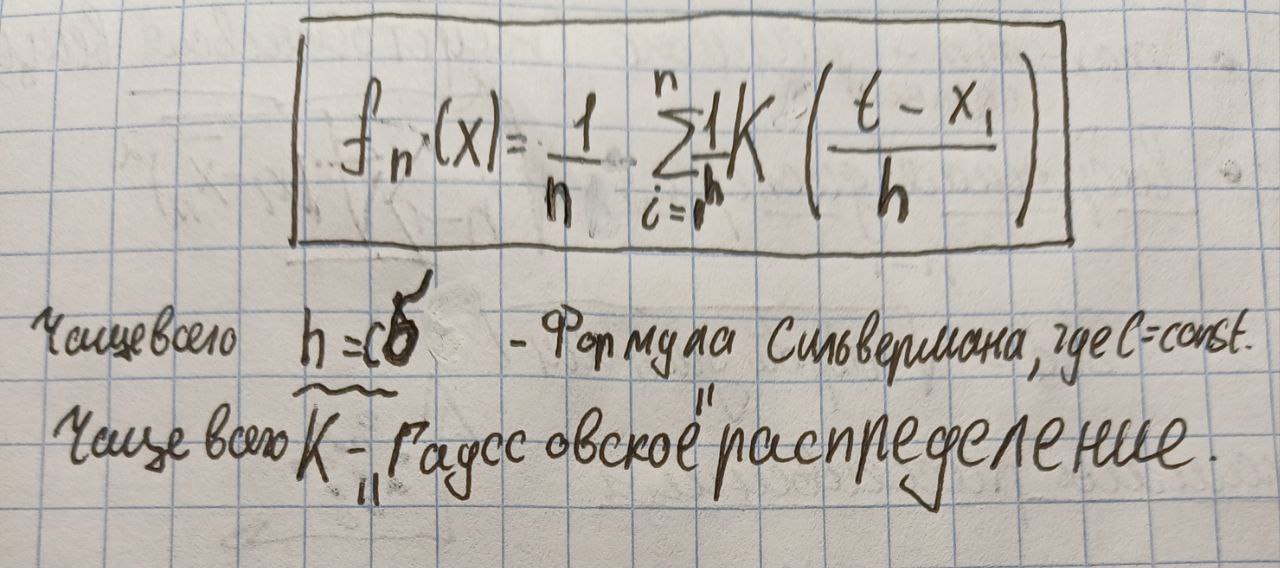 fₙ(x) = 1/n · Σ_{i=1}^{n} 1/h K ( (t - x₁) / h )
Чаще всего h = cб - Формула Сильвермана, где C = const.
Чаще всего K - „Гауссовское" распределение.